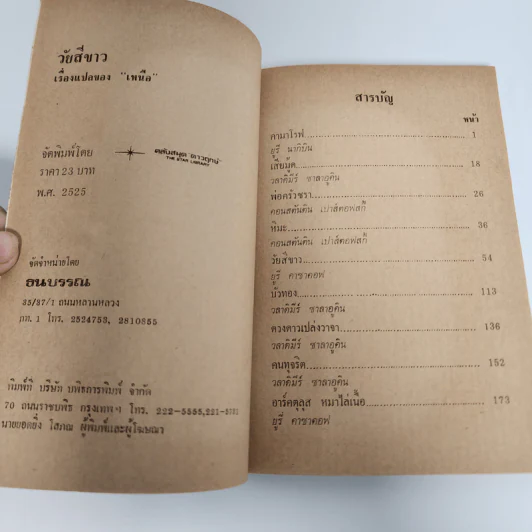 วัยสีขาว
เรื่องแปลของ "เหนือ"
จัดพิมพ์โดย
คลับสมุด ดาวฤกษ์
THE STAR LIBRARY
ราคา 23 บาท
พ.ศ. 2525
จัดจำหน่ายโดย
ธนบรรณ
35/37/1 ถนนหลานหลวง
กท. 1 โทร. 2524753, 2810855
พิมพ์ที่ บริษัท บพิธการพิมพ์ จำกัด
70 ถนนราชบพิธ กรุงเทพฯ โทร. 222-5555,221-
นายยอดยิ่ง โสภณ ผู้พิมพ์และผู้โฆษณา
สารบัญ
หน้า
คามาโรฟ 1
ยูรี นากิบิน
เสียมัด 18
วลาดิมีร์ ซาลาอูคิน
พ่อครัวชรา 26
คอนสตันติน เปาส์ตอฟสกี้
หิมะ 36
คอนสตันติน เปาส์ตอฟสกี้
วัยสีขาว 54
ยูรี คาซาคอฟ
บัวทอง 113
วลาดิมีร์ ซาลาอูคิน
ดวงดาวเปล่งวาจา 136
วลาดิมีร์ ซาลาอูคิน
คนทุจริต 152
วลาดิมีร์ ซาลาอูคิน
อาร์คตุลุส หมาไล่เนื้อ 173
ยูรี คาซาคอฟ